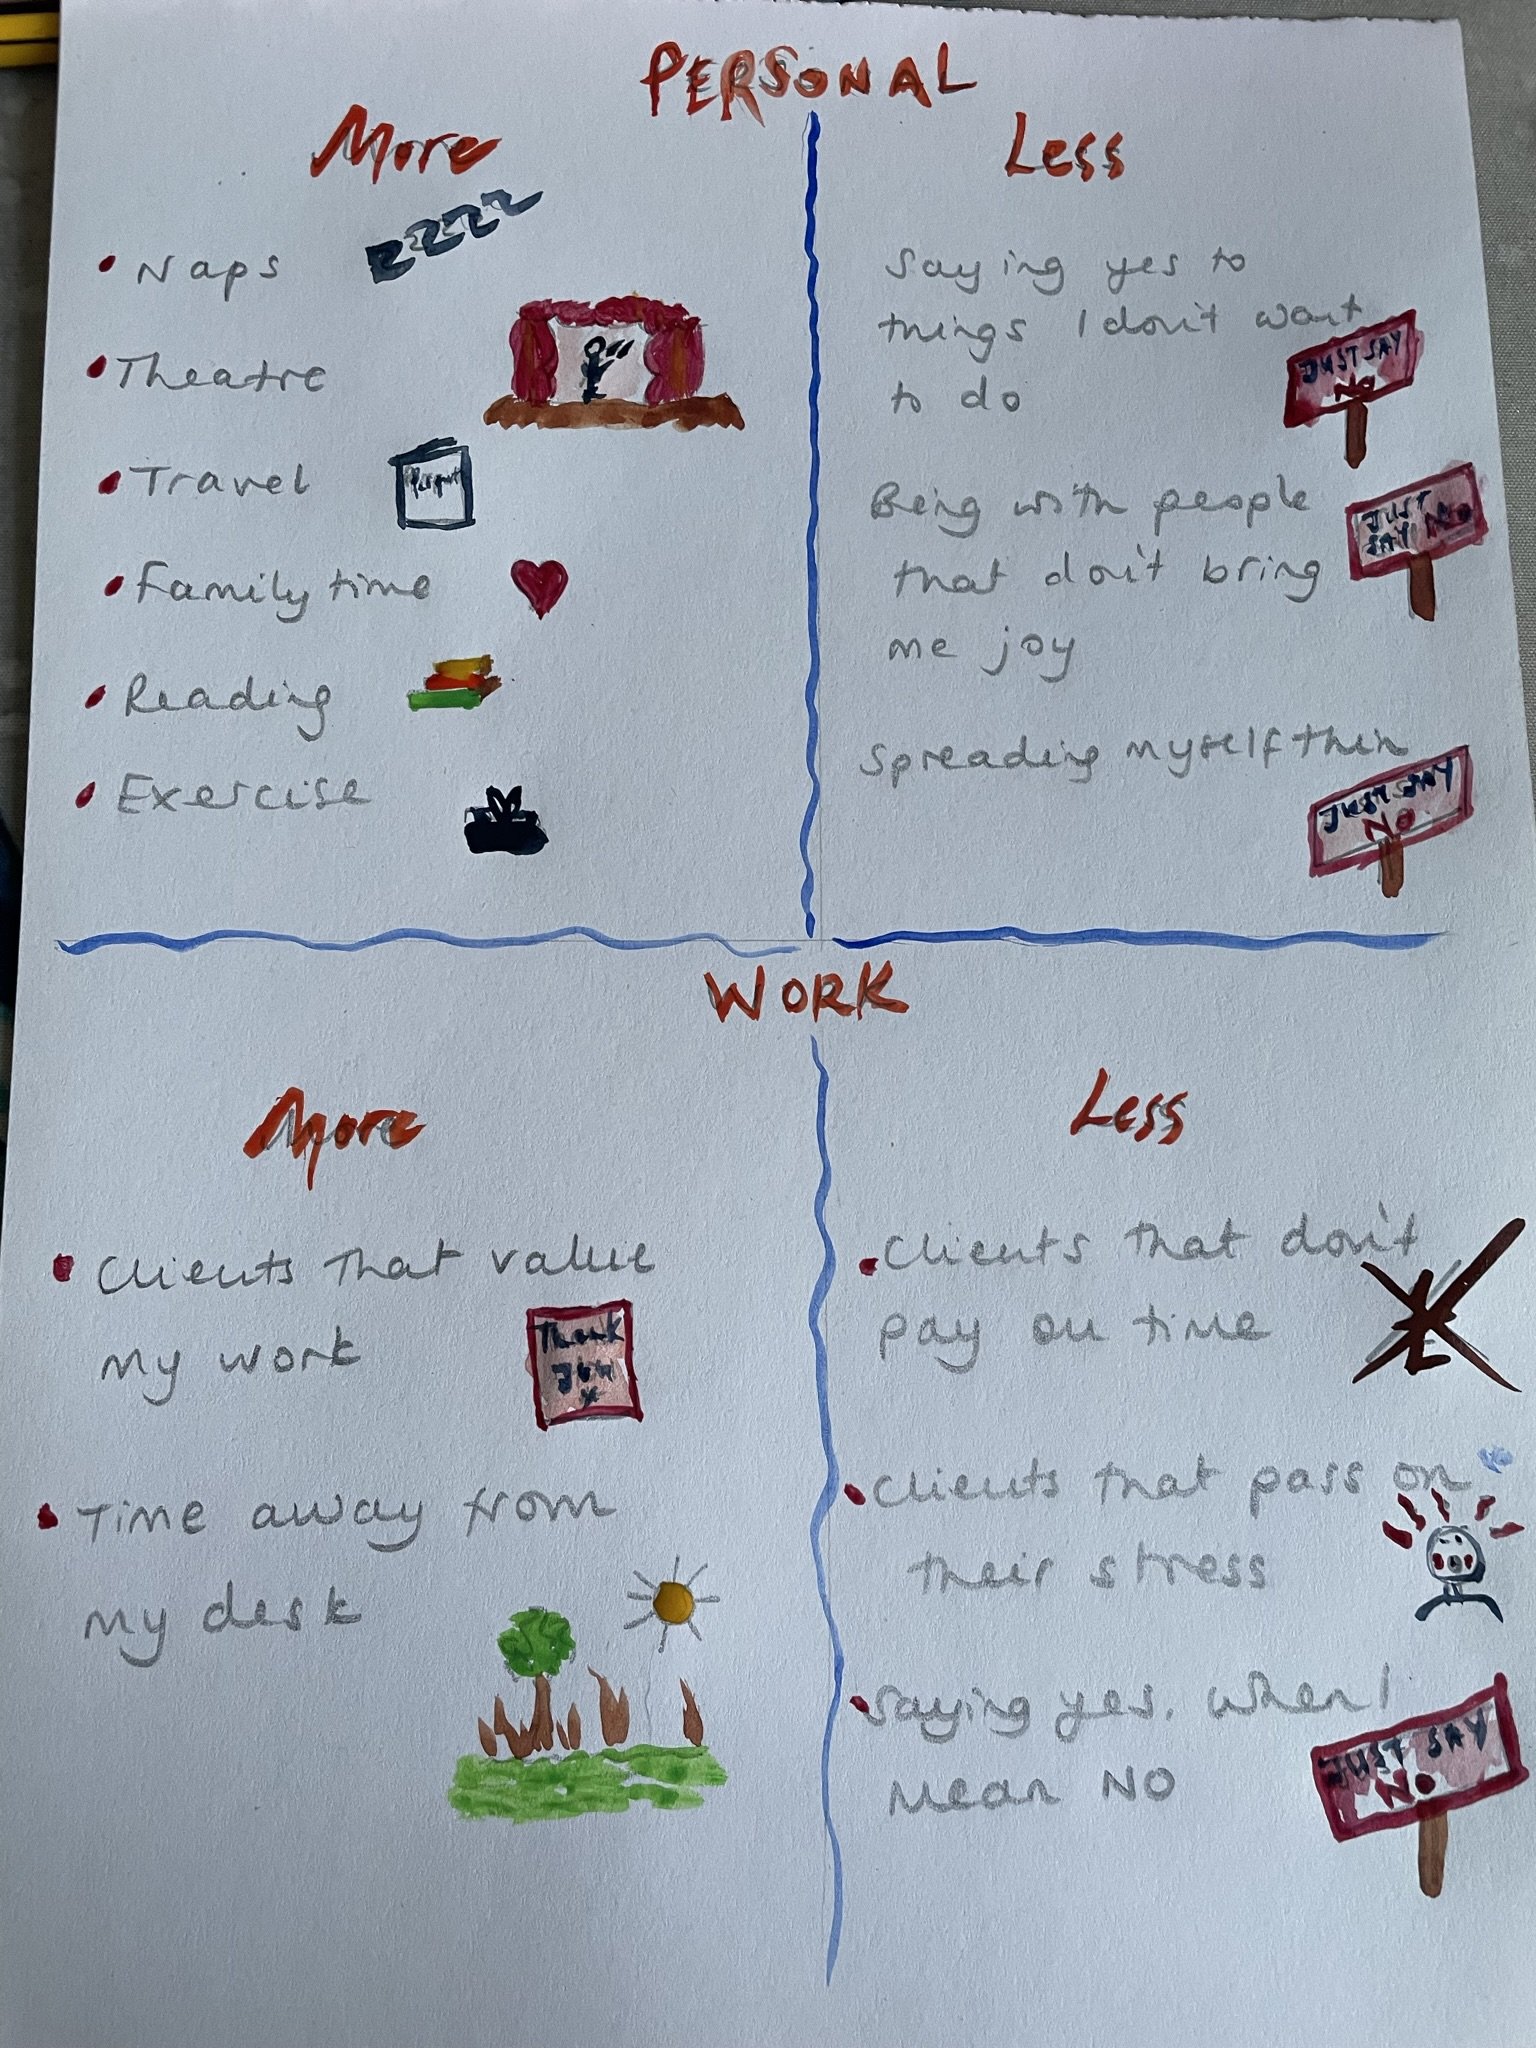 PERSONAL
More
zzzz
Naps
Theatre
Travel
Family time
Reading
Exercise
Less
Saying yes to
things I don't want
to do
JUST SAY
NO
Being with people
that don't bring
me joy
JUST
SAY NO
Spreading myself thin
JUST SAY
NO
WORK
More
Clients that value
my work
Thank
you
x
Time away from
my desk
Less
Clients that don't
pay on time
£
Clients that pass on
their stress
Saying yes, when I
mean NO
JUST SAY
NO